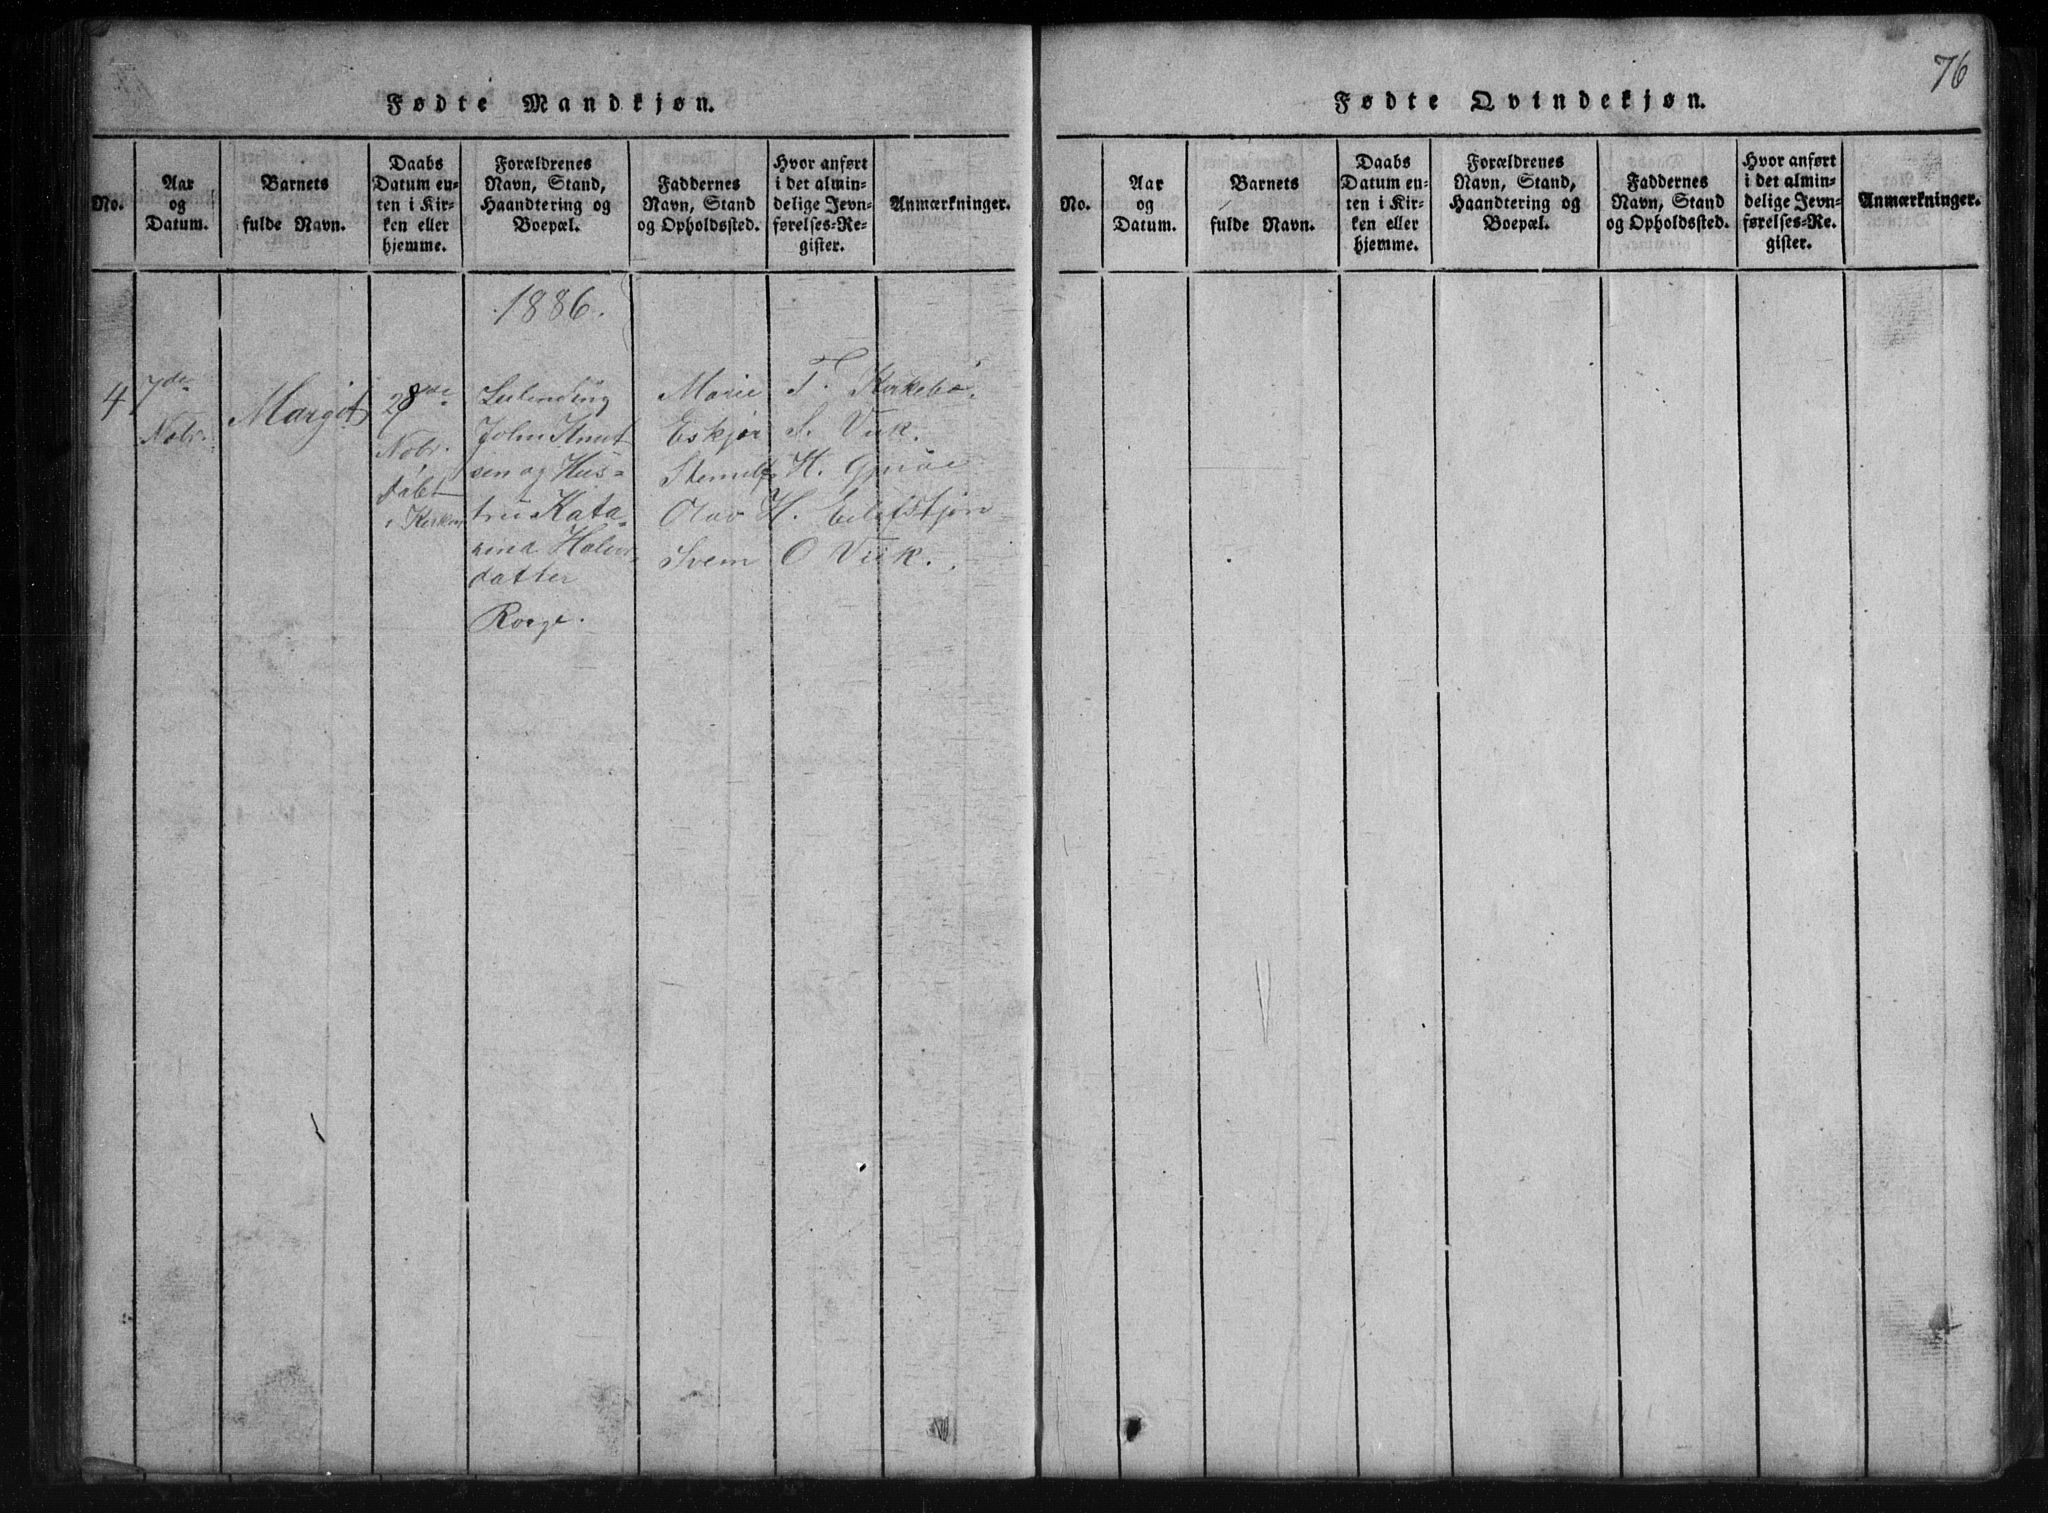 76
Fødte Mandkjøn.
No.
Aar
og
Datum.
Barnets
fulde Navn.
Daabs
Datum en-
ten i Kir-
ken eller
hjemme.
Forældrenes
Navn, Stand,
Haandtering og
Boepæl.
Faddernes
Navn, Stand
og Opholdssted.
Hvor anført
i det almin-
delige Jevn-
førelses-Re-
gister.
Anmærkninger.
1886.
4
7de
Nobr.
Margit
28de
Nobr.
døbt
i Kirken
John Knut
sen og Hus-
tru Kata-
rina Halvor-
datter
Roege.
Marie T. Kirkebø.
Eskjer S. Viik.
H.
Olav H. Eilefstjøn
Svein O Viik.
Fødte Qvindekjøn.
No.
Aar
og
Datum.
Barnets
fulde Navn.
Daabs
Datum en-
ten i Kir-
ken eller
hjemme.
Forældrenes
Navn, Stand,
Haandtering og
Boepæl.
Faddernes
Navn, Stand
og Opholdssted.
Hvor anført
i det almin-
delige Jevn-
førelses-Re-
gister.
Anmærkninger.